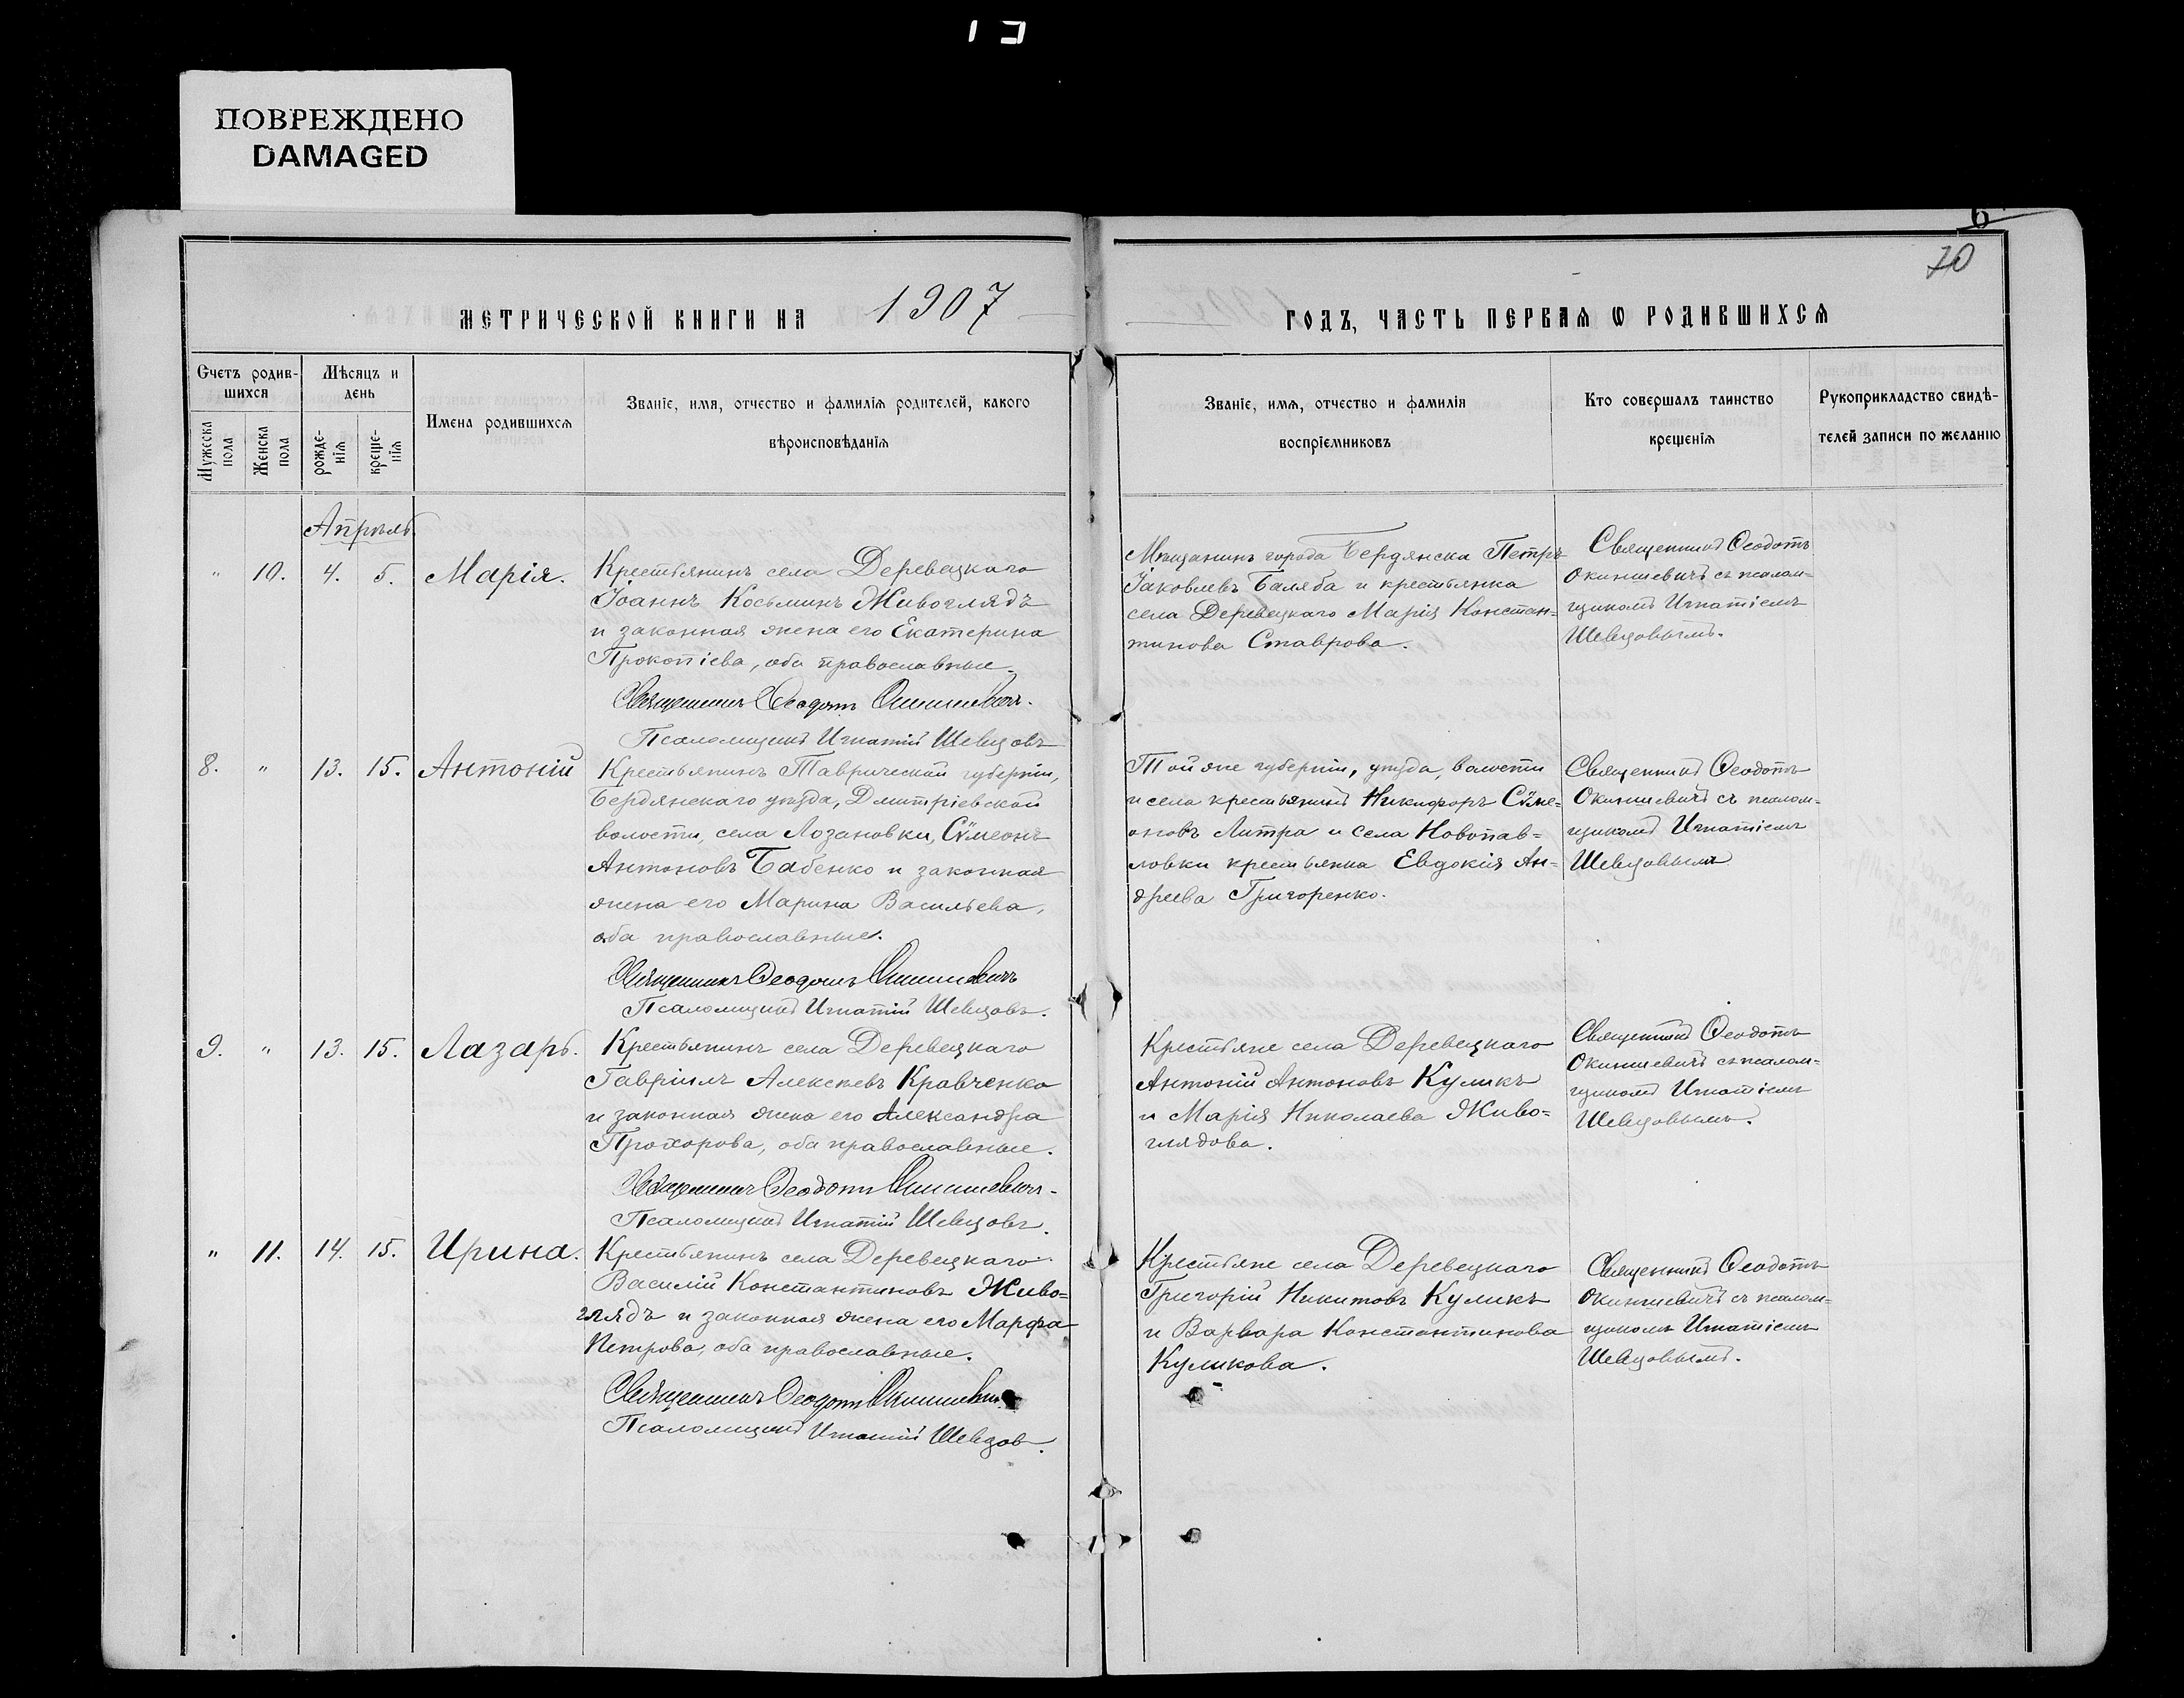 ПОВРЕЖДЕНО
DAMAGED
6
70
МЕТРИЧЕСКОЙ КНИГИ НА 1907
ГОДЪ, ЧАСТЬ ПЕРВАЯ Ѡ РОДИВШИХСЯ
Счетъ родив-
шихся
Мужеска пола
Женска пола
Мѣсяцъ и
день
рожде-
нія
креще-
нія
Имена родившихся
Званіе, имя, отчество и фамилія родителей, какого
вѣроисповѣданія
Званіе, имя, отчество и фамилія
воспріемниковъ
Кто совершалъ таинство
крещенія
Рукоприкладство свидѣ-
телей записи по желанію
Апрѣль
" 10. 4. 5. Марія.
Крестьянинъ села Деревецкаго
Іоаннъ Косьминъ Живоглядъ
и законная жена его Екатерина
Прокопіева, оба православные.
Священникъ Ѳеодотъ Окиншевичъ.
Псаломщикъ Игнатій Шевцовъ
Мѣщанинъ города Бердянска Петръ
Іаковлевъ Баляба и крестьянка
села Деревецкаго Марія Констан=
тинова Ставрова.
Священникъ Ѳеодотъ
Окиншевичъ съ псалом=
щикомъ Игнатіемъ
Шевцовымъ.
8. " 13. 15. Антоній
Крестьянинъ Таврической губерніи,
Бердянскаго уѣзда, Дмитріевской
волости, села Лозановки, Сѵмеонъ
Антоновъ Бабенко и законная
жена его Марина Васильева,
оба православные.
Священникъ Ѳеодотъ Окиншевичъ
Псаломщикъ Игнатій Шевцовъ.
Той же губерніи, уѣзда, волости
и села крестьянинъ Никифоръ Сѵме=
оновъ Литра и села Новопав=
ловки крестьянка Евдокія Ан=
дреева Григоренко.
Священникъ Ѳеодотъ
Окиншевичъ съ псалом=
щикомъ Игнатіемъ
Шевцовымъ
9. " 13. 15. Лазарь.
Крестьянинъ села Деревецкаго
Гавріилъ Алексѣевъ Кравченко
и законная жена его Александра
Прохорова, оба православные.
Священникъ Ѳеодотъ Окиншевичъ.
Псаломщикъ Игнатій Шевцовъ.
Крестьяне села Деревецкаго
Антоній Антоновъ Куликъ
и Марія Николаева Живо=
глядова.
Священникъ Ѳеодотъ
Окиншевичъ съ псалом=
щикомъ Игнатіемъ
Шевцовымъ.
" 11. 14. 15. Ирина.
Крестьянинъ села Деревецкаго
Василій Константиновъ Живо=
глядъ и законная жена его Марфа
Петрова, оба православные.
Священникъ Ѳеодотъ Окиншевич
Псаломщикъ Игнатій Шевцов.
Крестьяне села Деревецкаго
Григорій Никитовъ Куликъ
и Варвара Константинова
Куликова.
Священникъ Ѳеодотъ
Окиншевичъ съ псалом=
щикомъ Игнатіемъ
Шевцовымъ.